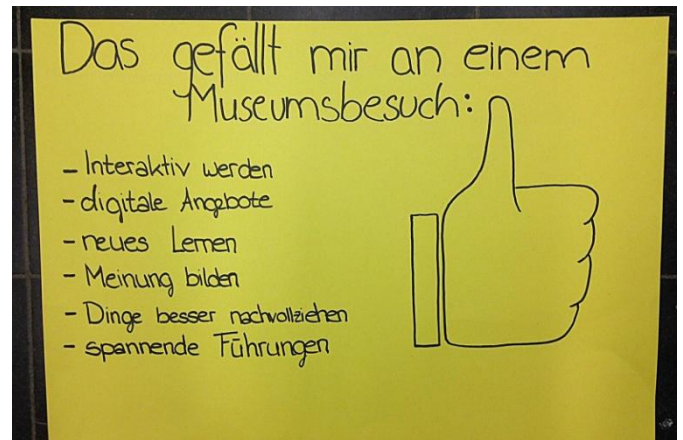 Das gefällt mir an einem
Museumsbesuch:
- Interaktiv werden
- digitale Angebote
- neues Lernen
- Meinung bilden
- Dinge besser nachvollziehen
- spannende Führungen